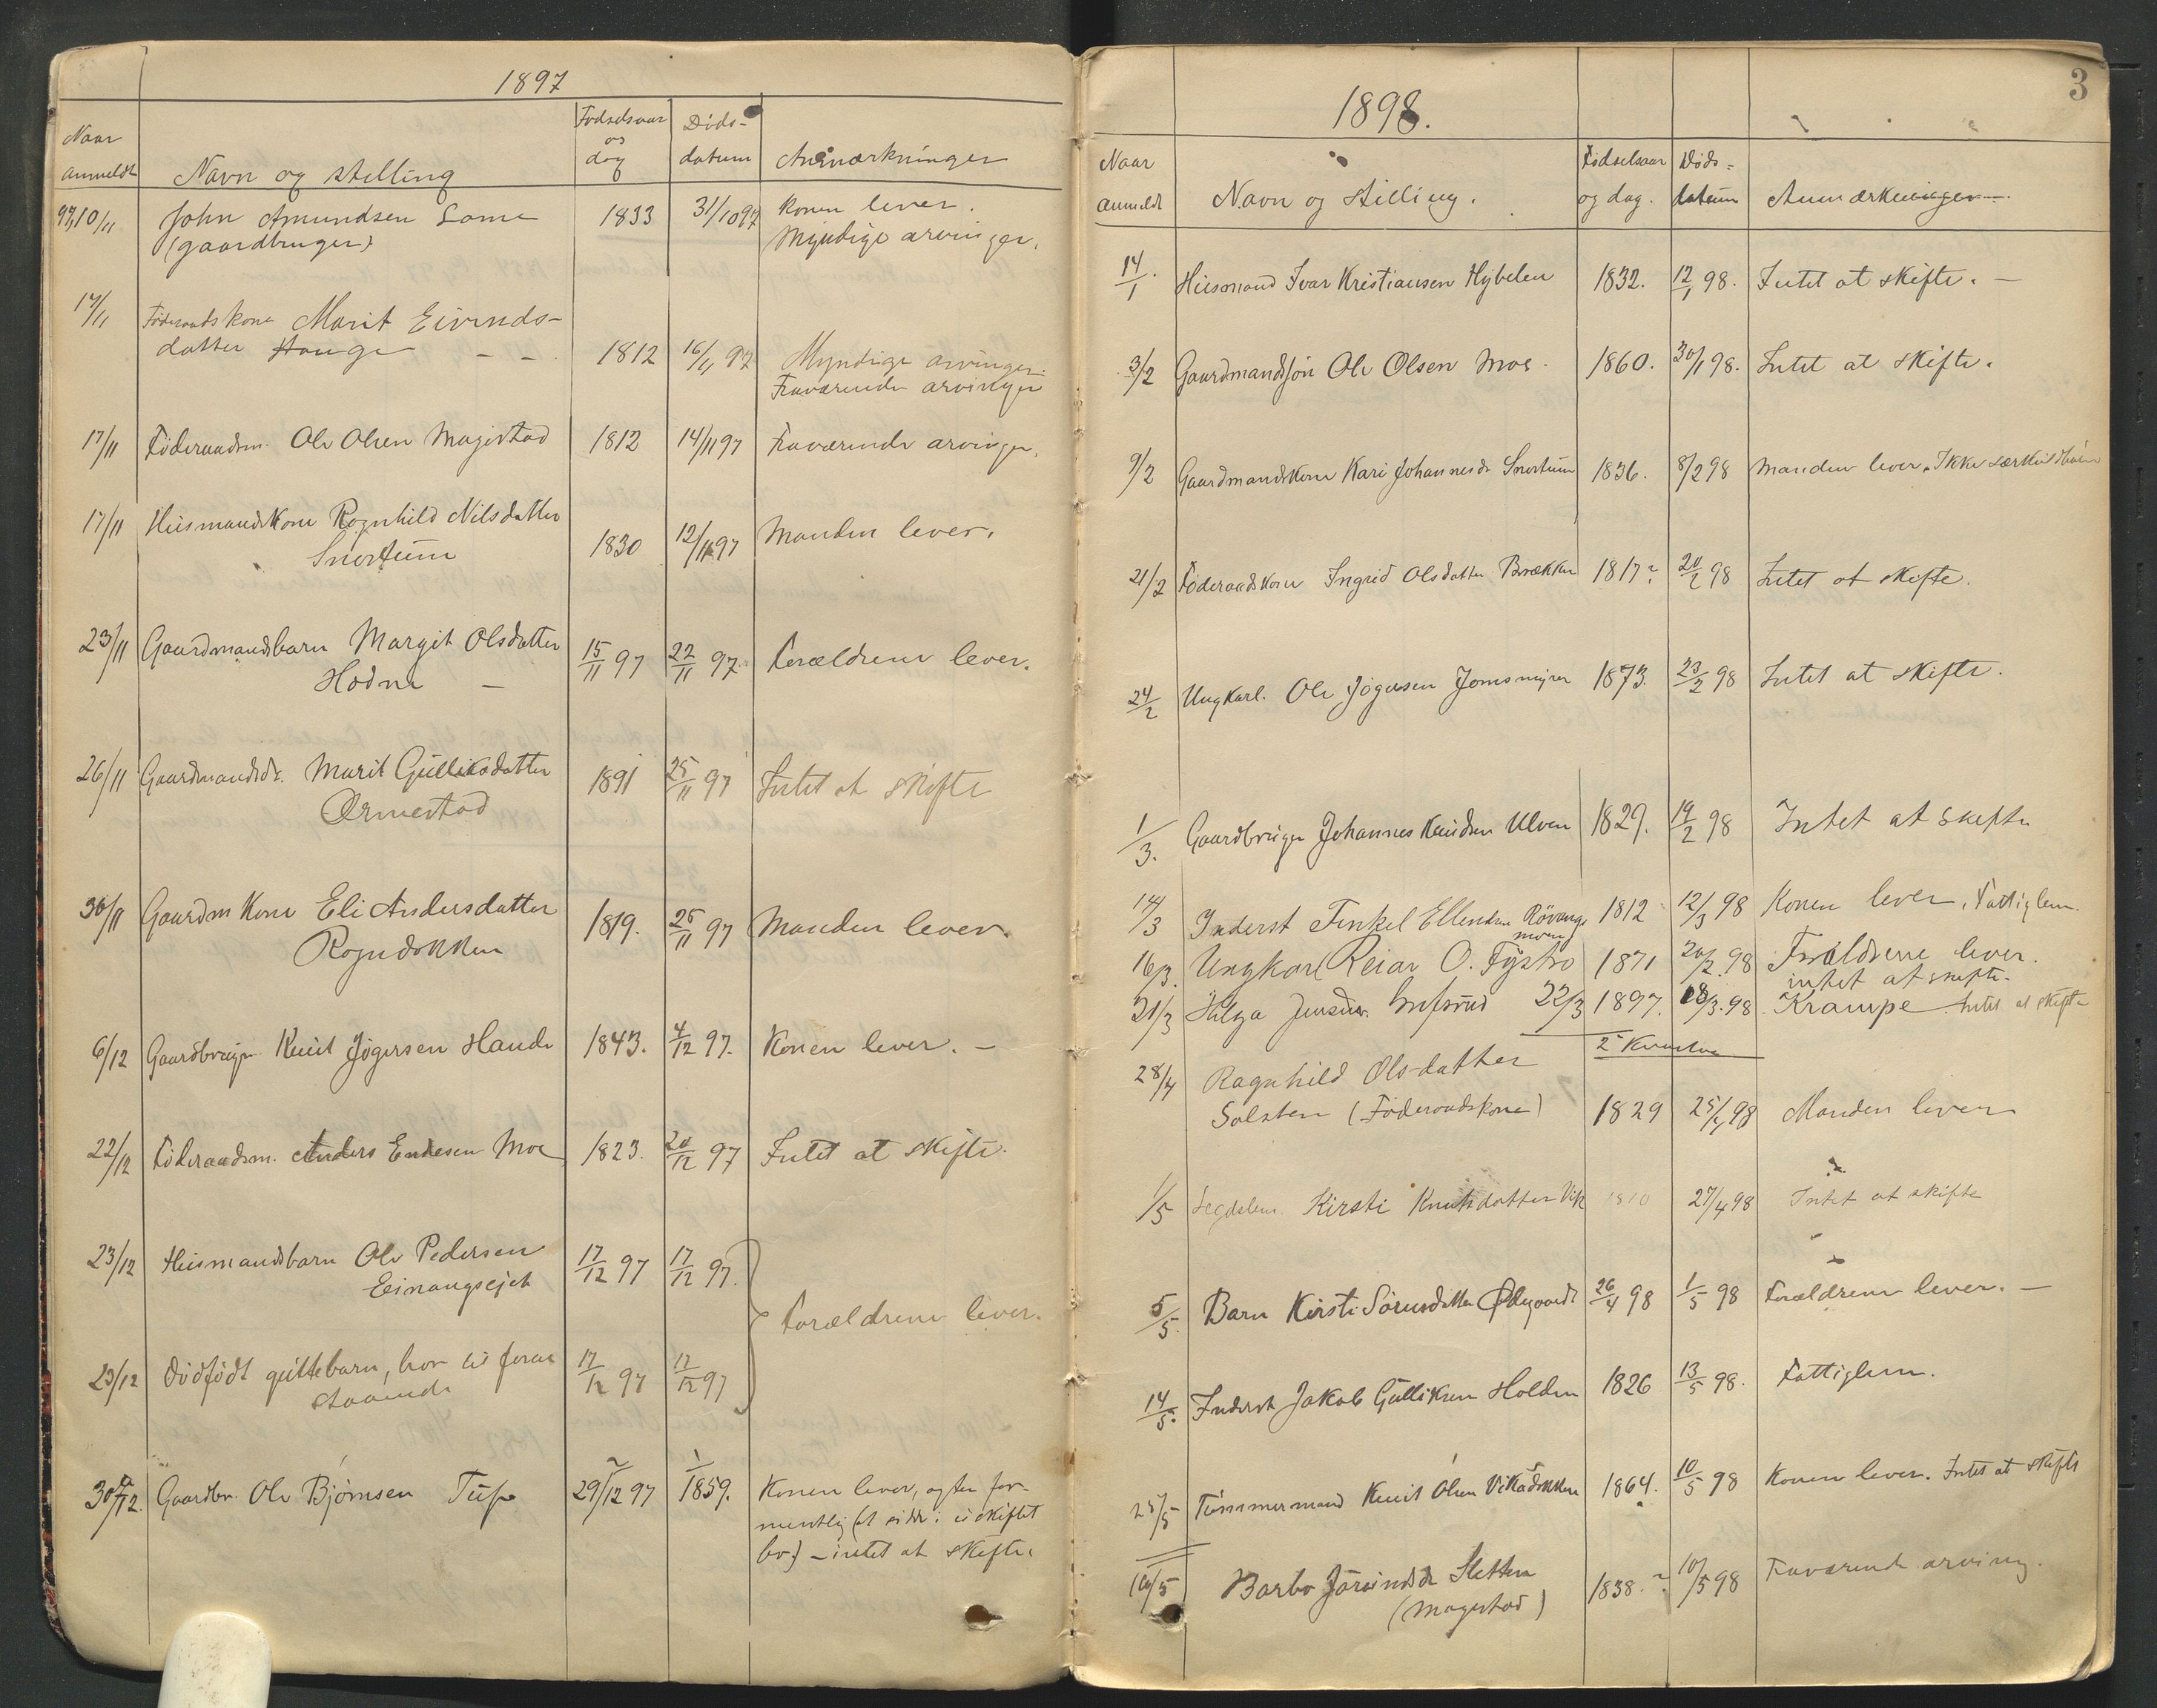 1897
Naar anmeldt
Navn og stilling
Fødselsaar og dag
Døds-datum
Anmærkninger
97,10/11 John Amundsen 1833 31/1097 Konen lever.
(gaardbruger) Myndige arvinger.
17/11 Føderaadskone Marit Eivinds-
datter Hauge - - 1812 16/11 97 Myndige arvinger.
Fraværende arvinger
17/11 Føderaadsm. Ole Olsen Magistad 1812 14/1197 Fraværende arvinger.
17/11 Huusmandskone Ragnhild Nilsdatter
Snortum 1830 12/1197 Manden lever.
23/11 Gaardmandsbarn Margit Olsdatter 15/11 97 22/11 97. Forældrene lever.
Hodne -
26/11 Gaardmandsdr. Marit Gulliksdatter 1891 25/11 97 Intet at skifte
Ormestad
30/11 Gaardm Kone Eli Andersdatter 1819. 25/11 97 Manden lever.
Rogndokken
6/12 Gaardbruger Knut Jøgersen Hande 1843. 4/12 97. Konen lever. -
22/12 Føderaadsm. Anders Endresen Moe 1823. 20/12 97 Intet at skifte.
23/12 Huusmandsbarn Ole Pedersen 17/12 97 17/12 97.
Einangsejet
Forældrene lever.
23/12 Dødfødt guttebarn, bror til foran 17/12 97 17/12 97
staaende
30/12. Gaardbr. Ole Bjørnsen 29/12 97 1859. Konen lever, agter for-
mentlig (at sidde i uskiftet
bo) - intet at skifte.
3
1898.
Naar anmeldt
Navn og stilling.
Fødselsaar og dag.
Døds-datum
Anmærkninger
14/1. Huusmand Ivar Kristiansen Hybelen 1832. 12/1 98. Intet at skifte. -
3/2 Gaardmandssøn Ole Olsen Moe. 1860. 30/1 98. Intet at skifte.
9/2 Gaardmandskone Kari Johannesdr Snortum 1836. 8/2 98 Manden lever. Ikke særkuldbørn
21/2 Føderaadskone Ingrid Olsdatter Brækken 1817? 20/2 98 Intet at skifte.
24/2 Ungkarl. Ole Jøgersen Jomsmyren 1873. 23/2 98 Intet at skifte.
1/3. Gaardbruger Johannes Knudsen Ulven 1829. 19/2 98 Intet at skifte
14/3 Inderst Tinkel Ellendsen Røvangs 1812 12/3 98 Konen lever, Fattiglem.
moen
16/3. Ungkarl Reiar O. Fystro 1871 20/2.98 Forældrene lever.
intet at skifte.
21/3 Helga Jensdtr. 22/3 1897. 18/3.98. Krampe. Intet at skifte
2 Kvartal
28/4 Ragnhild Olsdatter
Solsten (Føderaadskone) 1829 25/4 98 Manden lever
1/5 Legdslem Kirsti Knutsdatter Vik 1810 27/4 98 Intet at skifte
5/5. Barn Kirsti Sørensdatter Ødegaard 26/4 98 1/5 98 Forældrene lever. -
14/5. Inderst Jakob Gulliksen Holden 1826 13/5 98. Fattiglem.
25/5 Tømmermand Knut Olsen Vikadokken 1864. 10/5 98 Konen lever. Intet at skifte
16/5 Barbo Jørandsdr Sletten 1838.? 10/5 98 Fraværende arving.
(Magistad)